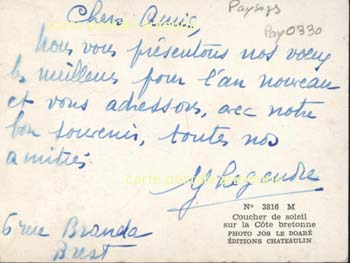 Chers Amis,
Paysages
Pay0330
Nous vous présentons nos vœux
les meilleurs pour l'an nouveau
et vous adressons, avec notre
bon souvenir, toutes nos
amitiés.
Y Legendre
6 rue Branda
Brest
N° 3816 M
Coucher de soleil
sur la Côte bretonne
PHOTO JOS LE DOARÉ
ÉDITIONS CHATEAULIN